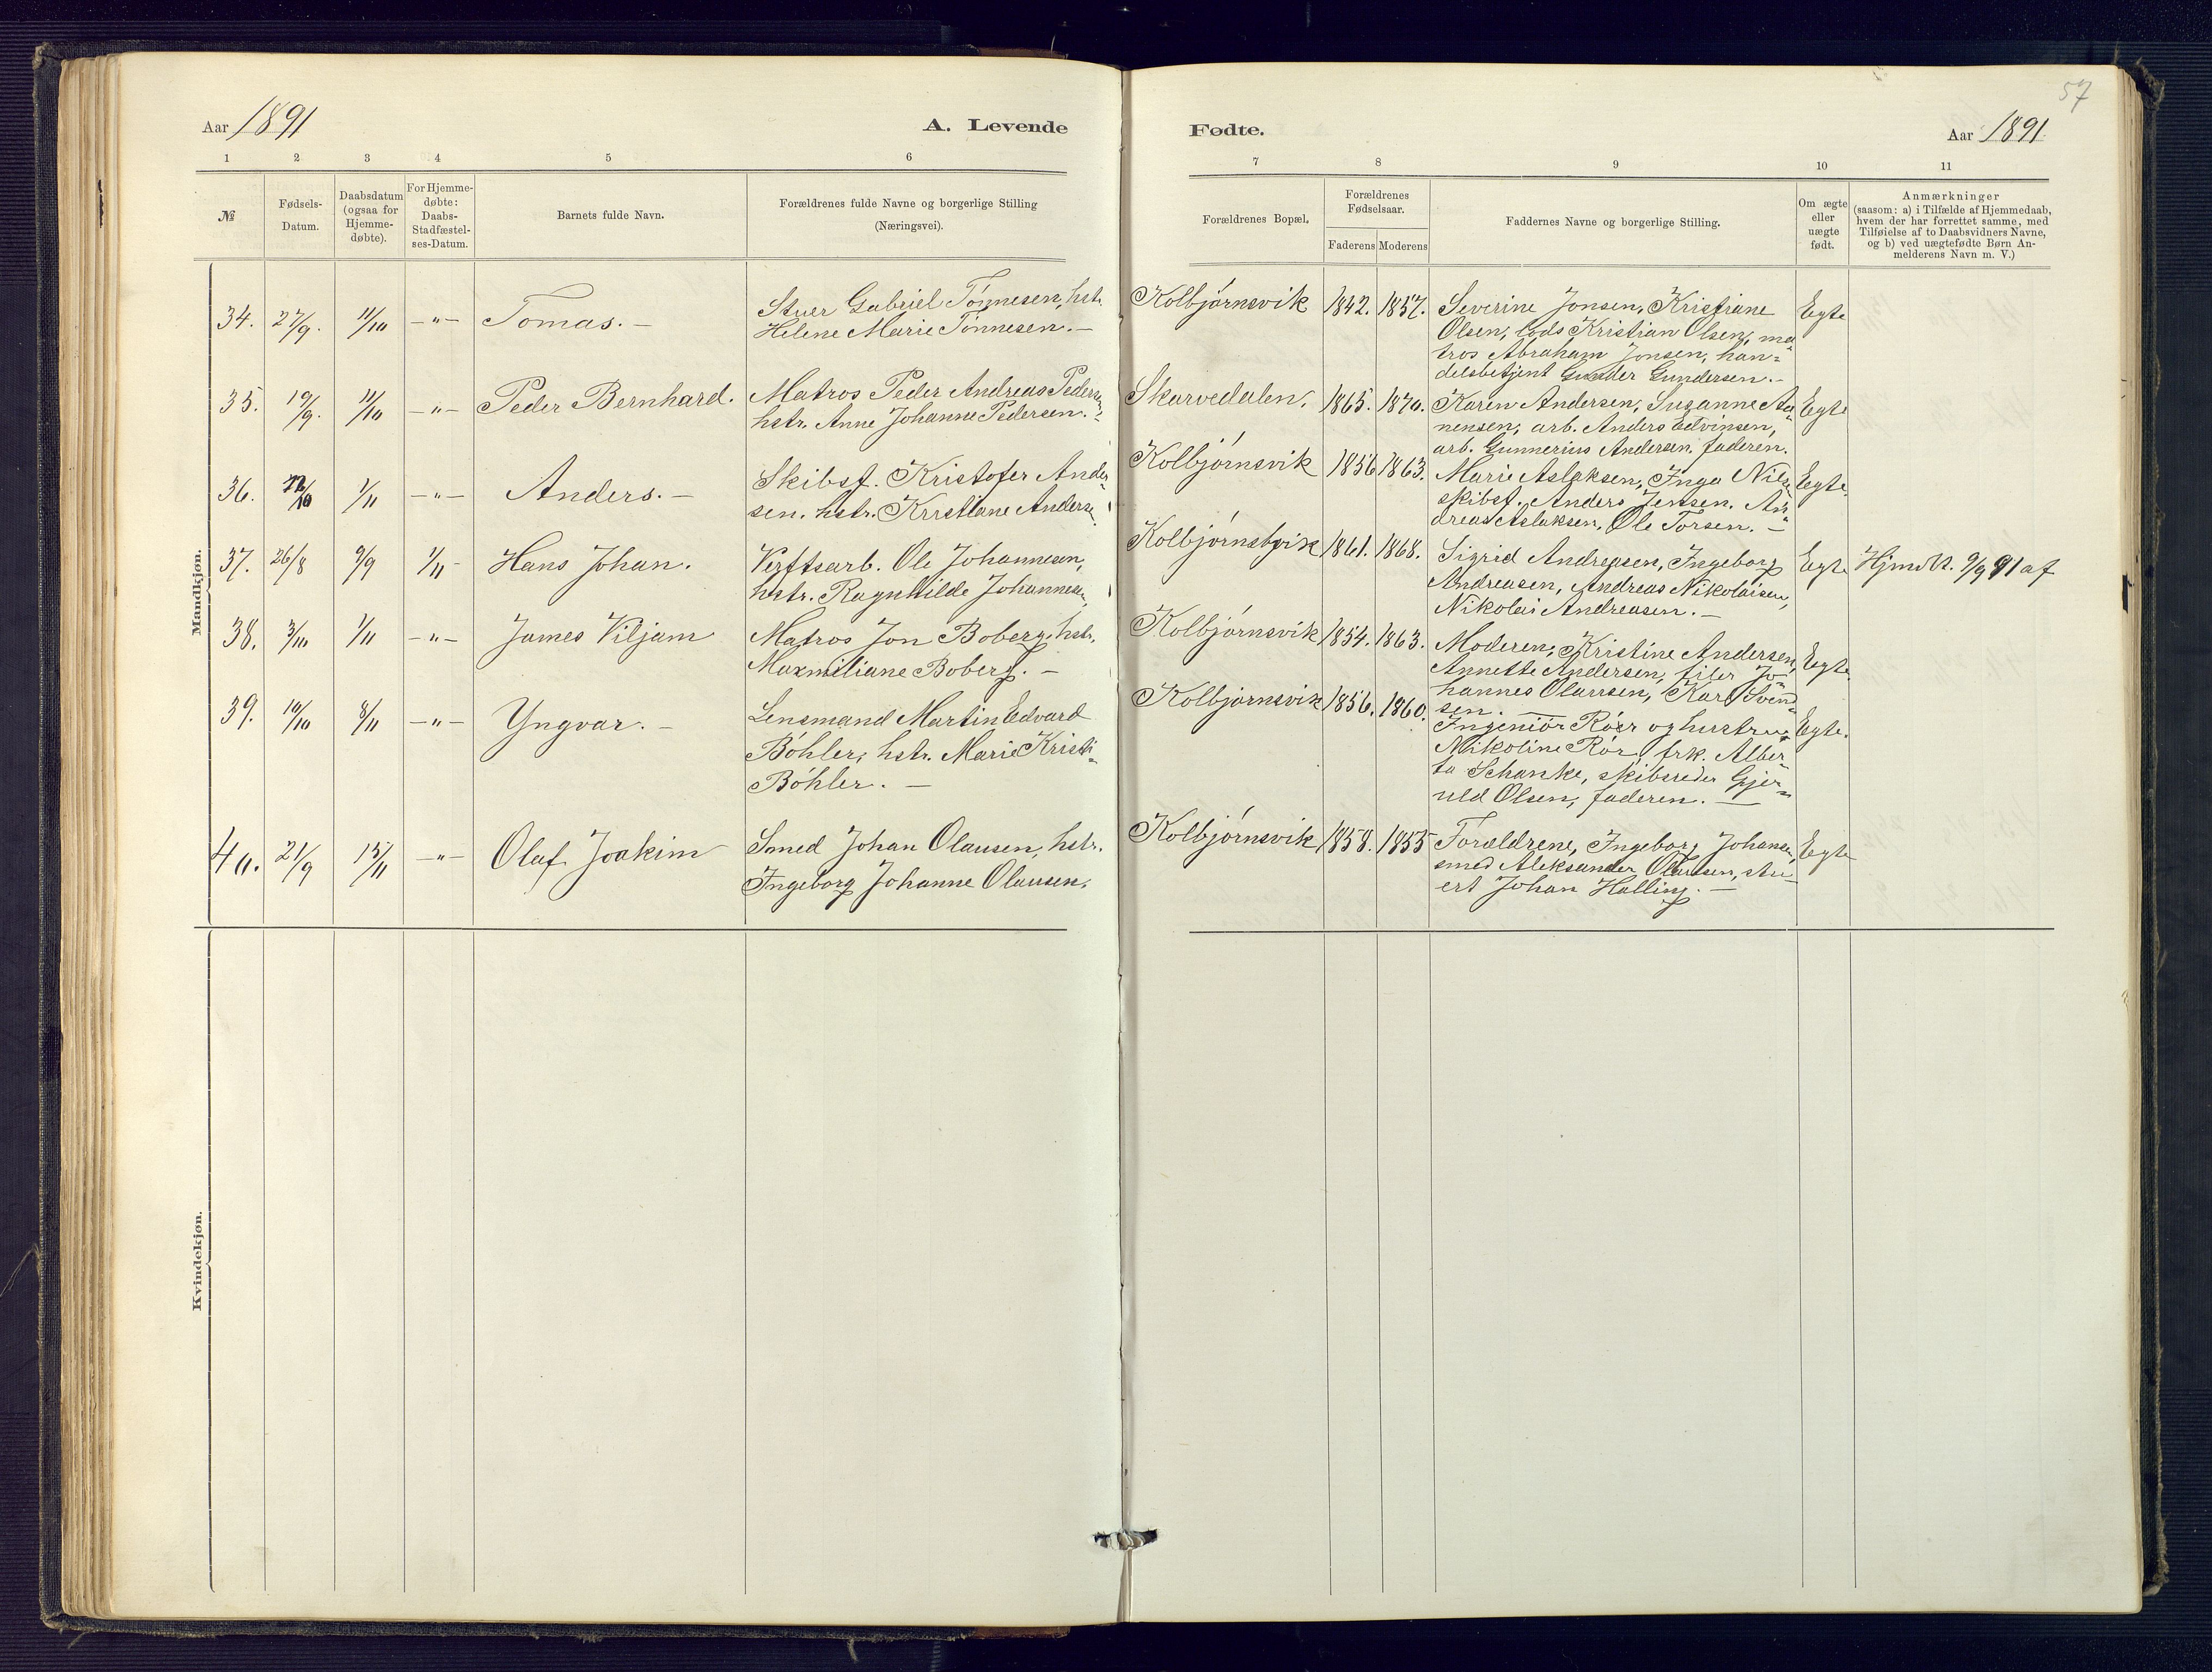 57
Aar 1891
A. Levende
Fødte.
Aar 1891.
1 2 3 4 5 6
7 8 9 10 11
№
Fødsels-
Datum.
Daabsdatum
(ogsaa for
Hjemme-
døbte).
For Hjemme-
døbte:
Daabs-
Stadfæstel-
ses-Datum.
Barnets fulde Navn.
Forældrenes fulde Navne og borgerlige Stilling
(Næringsvei).
Forældrenes Bopæl.
Forældrenes
Fødselsaar.
Faderens Moderens
Faddernes Navne og borgerlige Stilling.
Om ægte
eller
uægte
født.
Anmærkninger
(saasom: a) i Tilfælde af Hjemmedaab,
hvem der har forrettet samme, med
Tilføielse af to Daabsvidners Navne,
og b) ved uægtefødte Børn An-
melderens Navn m. V.)
Mandkjøn.
34. 27/9. 11/10 -"- Tomas. -
Stuer Gabriel Tönnesen, hstr.
Helene Marie Tönnesen. -
Kolbjörnsvik 1842. 1857.
Severine Jonsen, Kristiane
Olsen, lods Kristian Olsen, ma-
tros Abraham Jonsen, han-
delsbetjent Gunder Gundersen. -
Egte
35. 19/9. 11/10 -"- Peder Bernhard.
Matros Peder Andreas Pedersen,
hstr. Anne Johanne Pedersen. -
Skarvedalen. 1865. 1870.
Karen Andersen, Susanne Aa-
nensen, arb. Anders Edvinsen,
arb. Gunnerius Andersen. faderen.
Egte
36. /10 1/11 -"- Anders. -
Skibsf. Kristofer Ander-
sen. hstr. Kristiane Andersen.
Kolbjörnsvik 1856 1863.
Marie Aslaksen, Inga Nils
skibsf. Anders Jensen. An-
dreas Aslaksen, Ole Torsen. -
Egte.
37. 26/8 9/9 1/11 Hans Johan.
Verftsarb. Ole Johannesen,
hstr. Ragnhilde Johannesen,
Kolbjörnsvik 1861. 1868.
Sigrid Andreasen, Ingeborg
Andreasen, Andreas Nikolaisen,
Nikolai Andreasen. -
Egte
Hjmdt. 9/9 91 af
38. 3/10 1/11 -"- James Viljam
Matros Jon Boberg, hstr.
Maxmiliane Boberg. -
Kolbjörnsvik 1854. 1863.
Moderen, Kristine Andersen,
Annette Andersen, filer Jo-
hannes Olaussen, Karl Svend-
sen. -
Egte.
39. 10/10 8/11 -"- Yngvar. -
Lensmand Martin Edvard
Böhler, hstr. Marie Kristi-
Böhler. -
Kolbjörnsvik 1856. 1860.
Ingeniör Röer og hustru
Nikoline Rör, frk. Alber-
ta Schanke, skibsreder Gjer-
uld Olsen, faderen. -
Egte.
40. 21/9 15/11 -"- Olaf Joakim
Smed Johan Olausen, hstr.
Ingeborg Johanne Olausen.
Kolbjörnsvik 1858. 1855
Forældrene, Ingeborg Johansen,
smed Aleksander Olaussen, stu-
ert Johan Halling. -
Egte
Kvindekjøn.